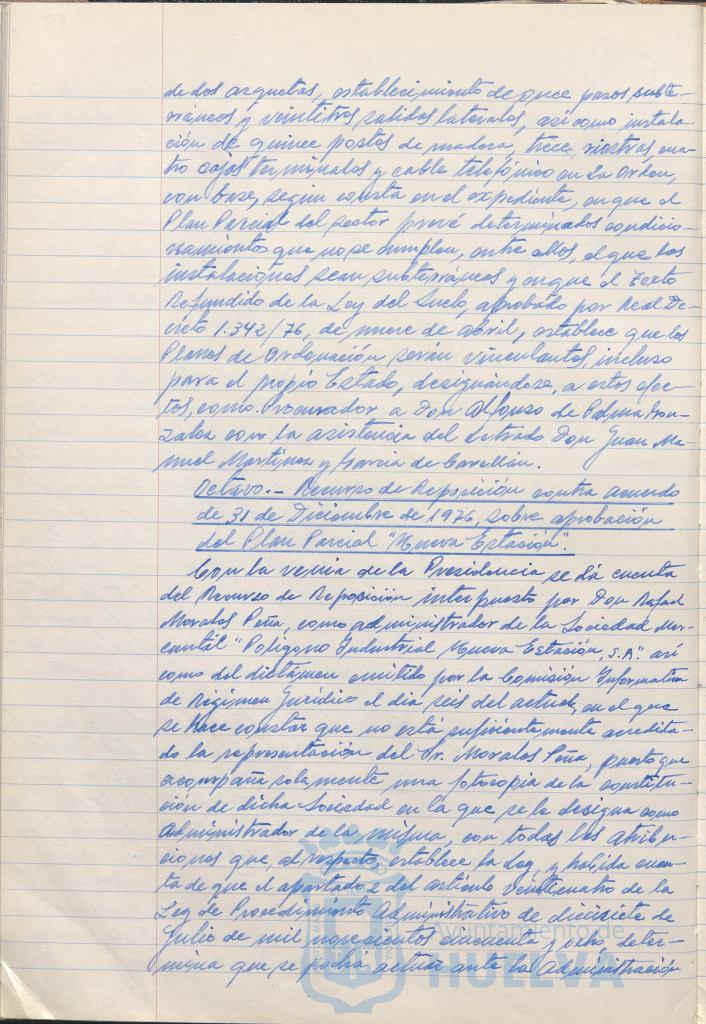 de dos arquetas, establecimiento de once pasos subte-
rráneos y veintitres salidas laterales, así como instala-
ción de quince postes de madera, trece riostras, cua-
tro cajas terminales y cable telefónico en La Orden,
con base, según consta en el expediente, en que el
Plan Parcial del sector prevé determinados condicio-
namientos que no se cumplen, entre ellos, el que las
instalaciones sean subterráneas y en que el Texto
Refundido de la Ley del Suelo, aprobado por Real De-
creto 1.342/76, de nueve de Abril, establece que los
Planes de Ordenación serán vinculantes, incluso
para el propio Estado, designándose, a estos efec-
tos, como Procurador a Don Alfonso de Palma Gon-
zález con la asistencia del Letrado Don Juan Ma-
nuel Martínez y García de
Octavo.- Recurso de Reposición contra acuerdo
de 31 de Diciembre de 1976, sobre aprobación
del Plan Parcial "Nueva Estación".
Con la venia de la Presidencia se dá cuenta
del Recurso de Reposición interpuesto por Don Rafael
Morales Peña, como administrador de la Sociedad Mer-
cantil "Polígono Industrial Nueva Estación, S.A." así
como del dictámen emitido por la Comisión Informativa
de Régimen Jurídico el dia seis del actual, en el que
se hace constar que no está suficientemente acredita-
do la representación del Sr. Morales Peña, puesto que
acompaña solamente una fotocopia de la constitu-
ción de dicha Sociedad en la que se le designa como
Administrador de la misma, con todas las atribu-
ciones que, al respecto, establece la Ley, y habida cuen-
ta de que el apartado 2 del artículo veinticuatro de la
Ley de Procedimiento Administrativo de diecisiete de
Julio de mil novecientos cincuenta y ocho, deter-
mina que se podrá actuar ante la Administración
Ayuntamiento de
HUELVA